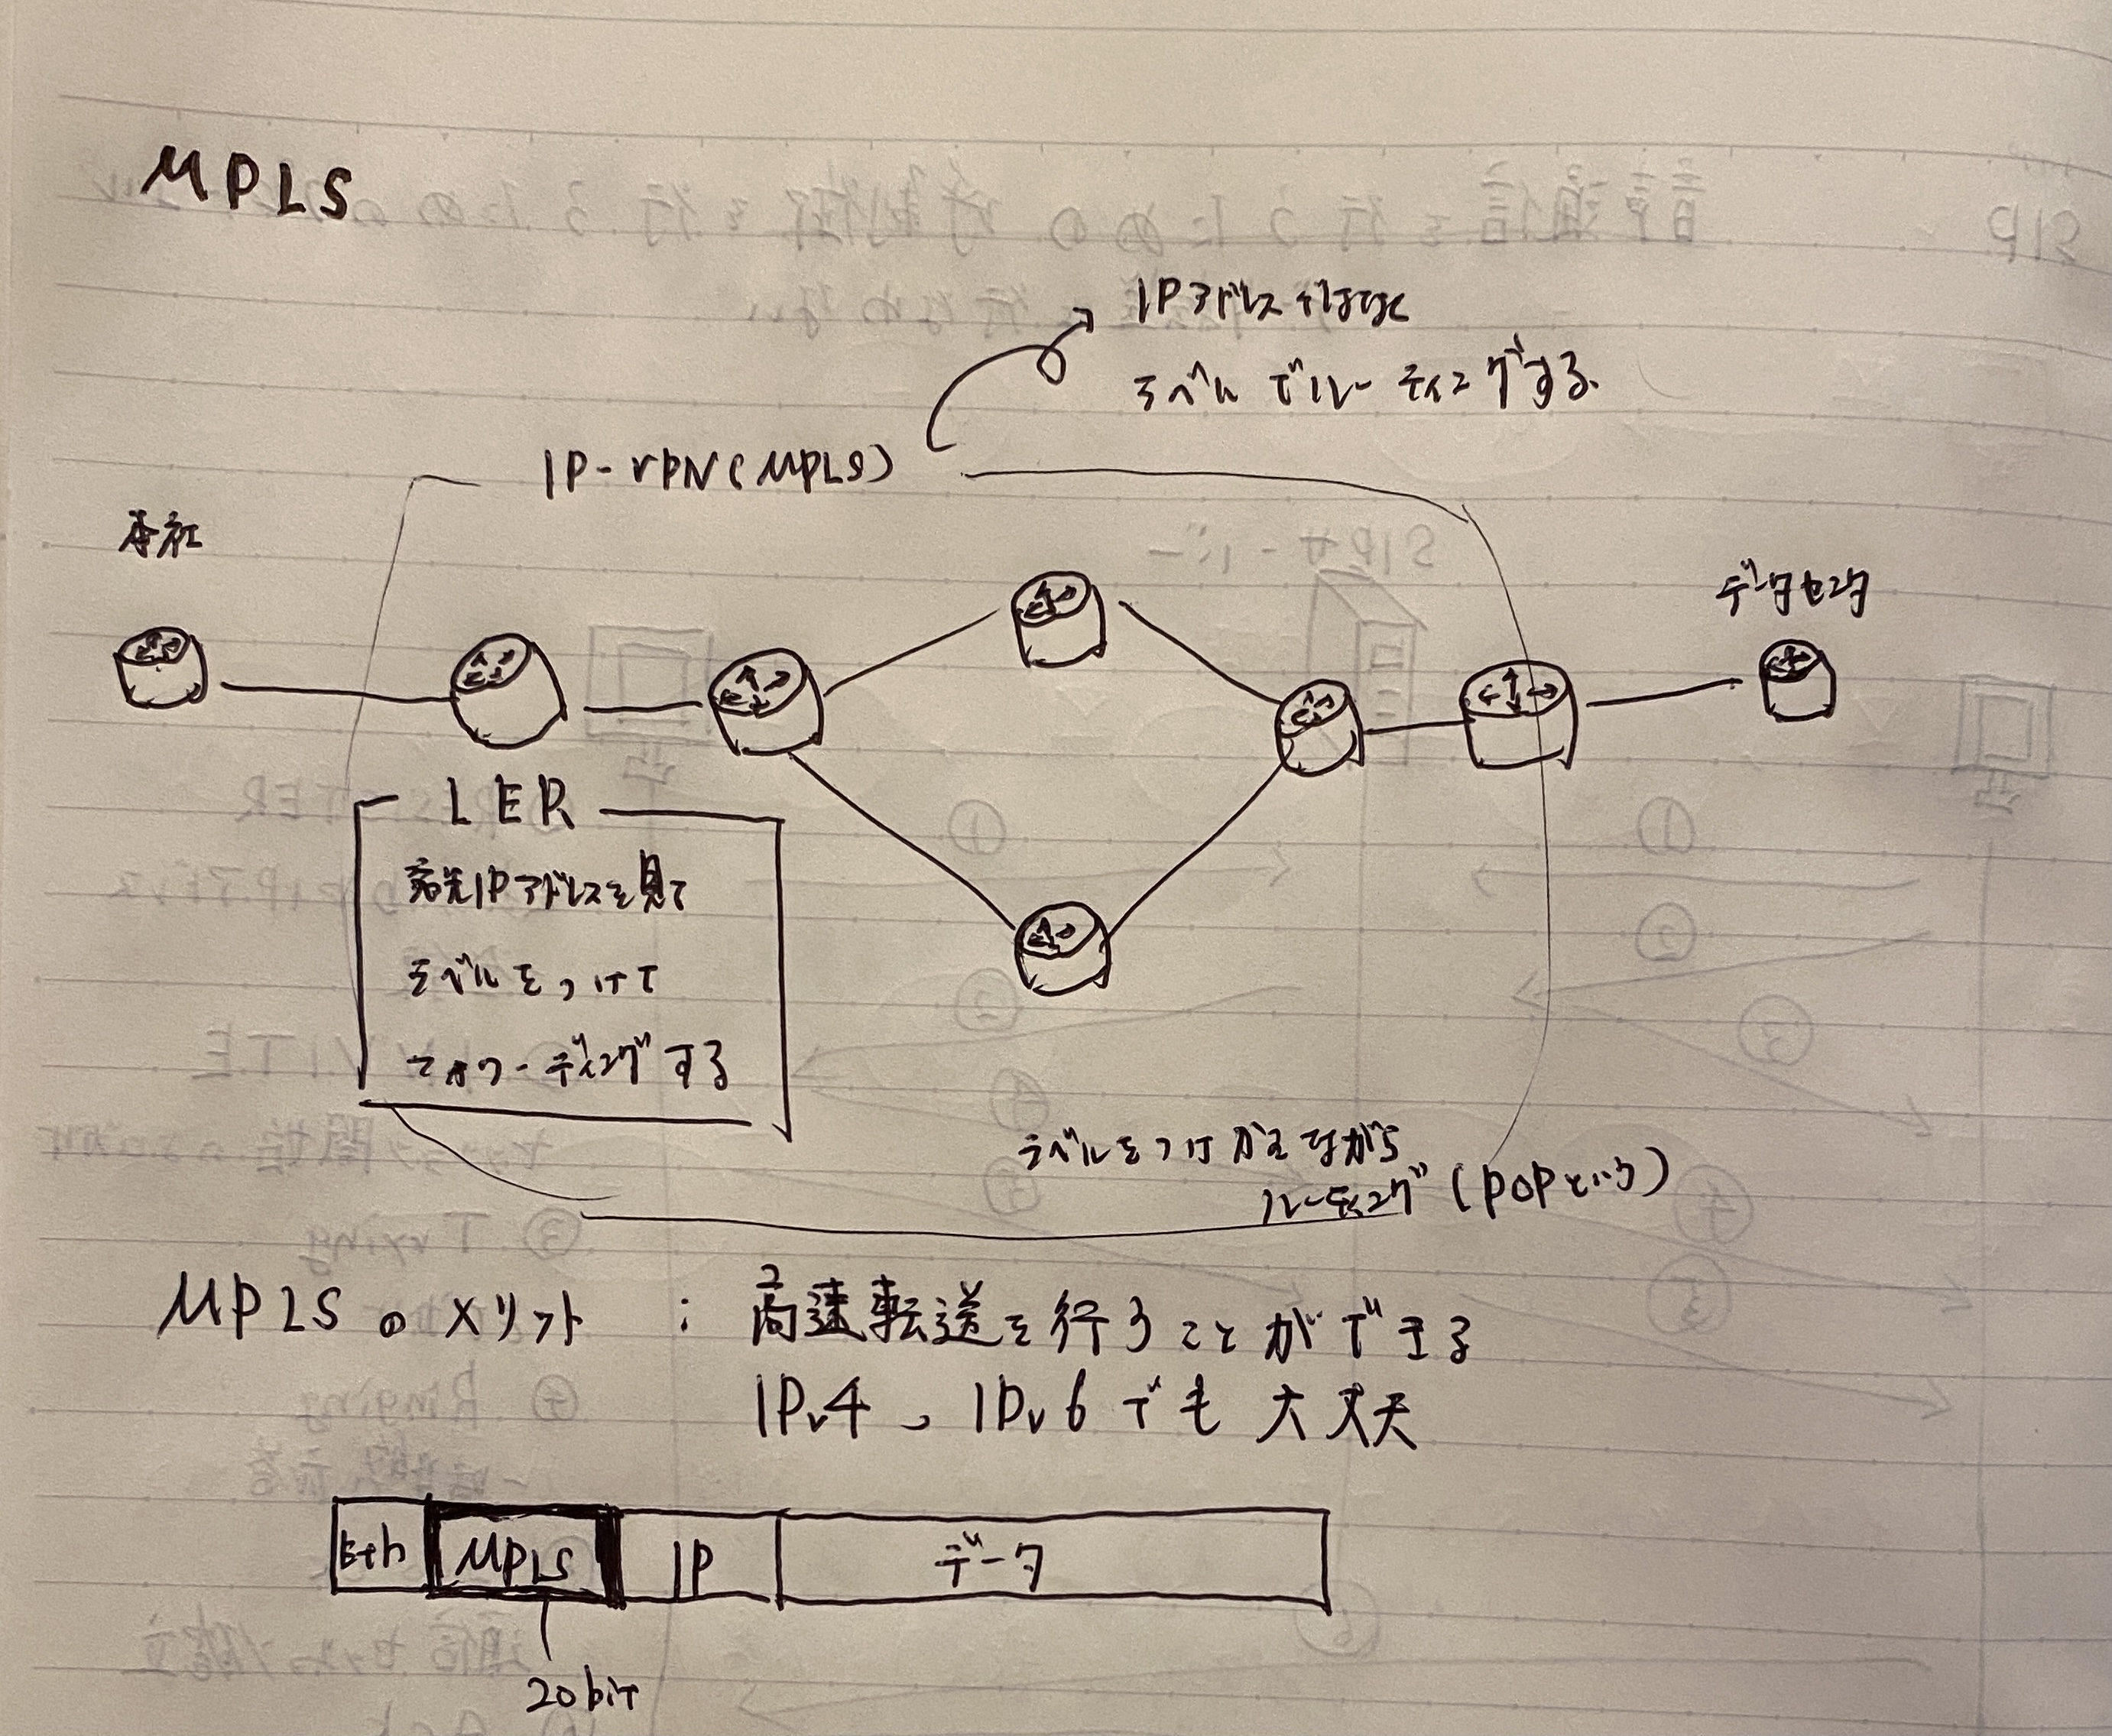 MPLS
IPアドレスではなく
ラベルでルーティングする
IP-VPN(MPLS)
本社
データセンタ
LER
宛先IPアドレスを見て
ラベルをつけて
フォワーディングする
ラベルをつけかえながら
ルーティング(POPという)
MPLSのメリット : 高速転送を行うことができる
IPv4、IPv6でも大丈夫
Eth MPLS IP データ
20bit